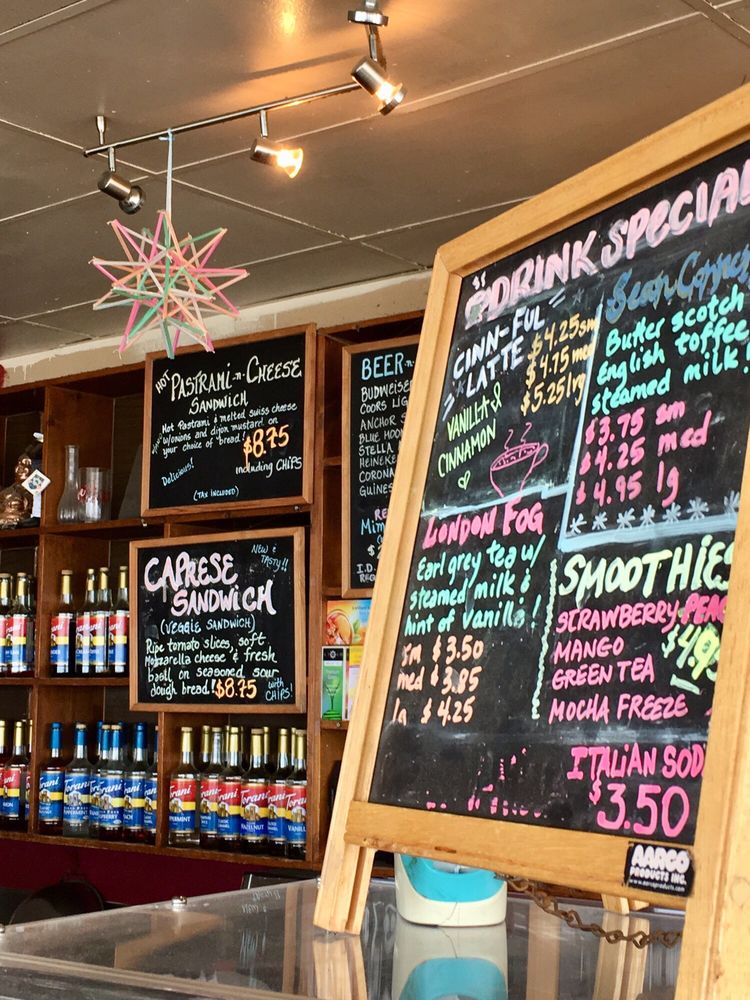 HOT PASTRAMI-n-CHEESE
SANDWICH
Hot Pastrami & melted swiss cheese
w/onions and dijon mustard on
your choice of bread!
$8.75
including CHIPS
Delicious!
(TAX INCLUDED)
NEW & TASTY!!
CAPRESE
SANDWICH
(VEGGIE SANDWICH)
Ripe tomato slices, soft
Mozzarella cheese & fresh
basil on seasoned sour
dough bread! $8.75 with CHIPS!
BEER
BUDWEISE
COORS LIG
ANCHOR S
BLUE MOON
STELLA
HEINEKE
CORONA
GUINES
Mim
I.D.
DRINK SPECIAL
CINN-FUL
LATTE
$4.25 sm
$4.75 med
$5.25 lg
VANILLA &
CINNAMON
Sean Conner
Butter scotch
English toffee
steamed milk!
$3.75 sm
$4.25 med
$4.95 lg
LONDON FOG
Earl grey tea w/
steamed milk &
hint of vanilla!
sm $3.50
med $3.85
lg $4.25
SMOOTHIES
STRAWBERRY PEAC
MANGO
GREEN TEA
MOCHA FREEZE
ITALIAN SOD
$3.50
AARCO
PRODUCTS INC.
www.aarcoproducts.com
Torani
Torani
Torani
Torani
Torani
Torani
HAZELNUT
VANILL